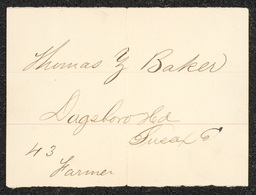 Thomas Y Baker
Dagsboro Hd
Sussex C
43
Farmer